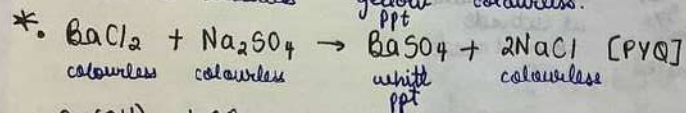 yellow colourless.
ppt
*. BaCl₂ + Na₂SO₄ → BaSO₄ + 2NaCl [PYQ]
colourless colourless white colourless
ppt